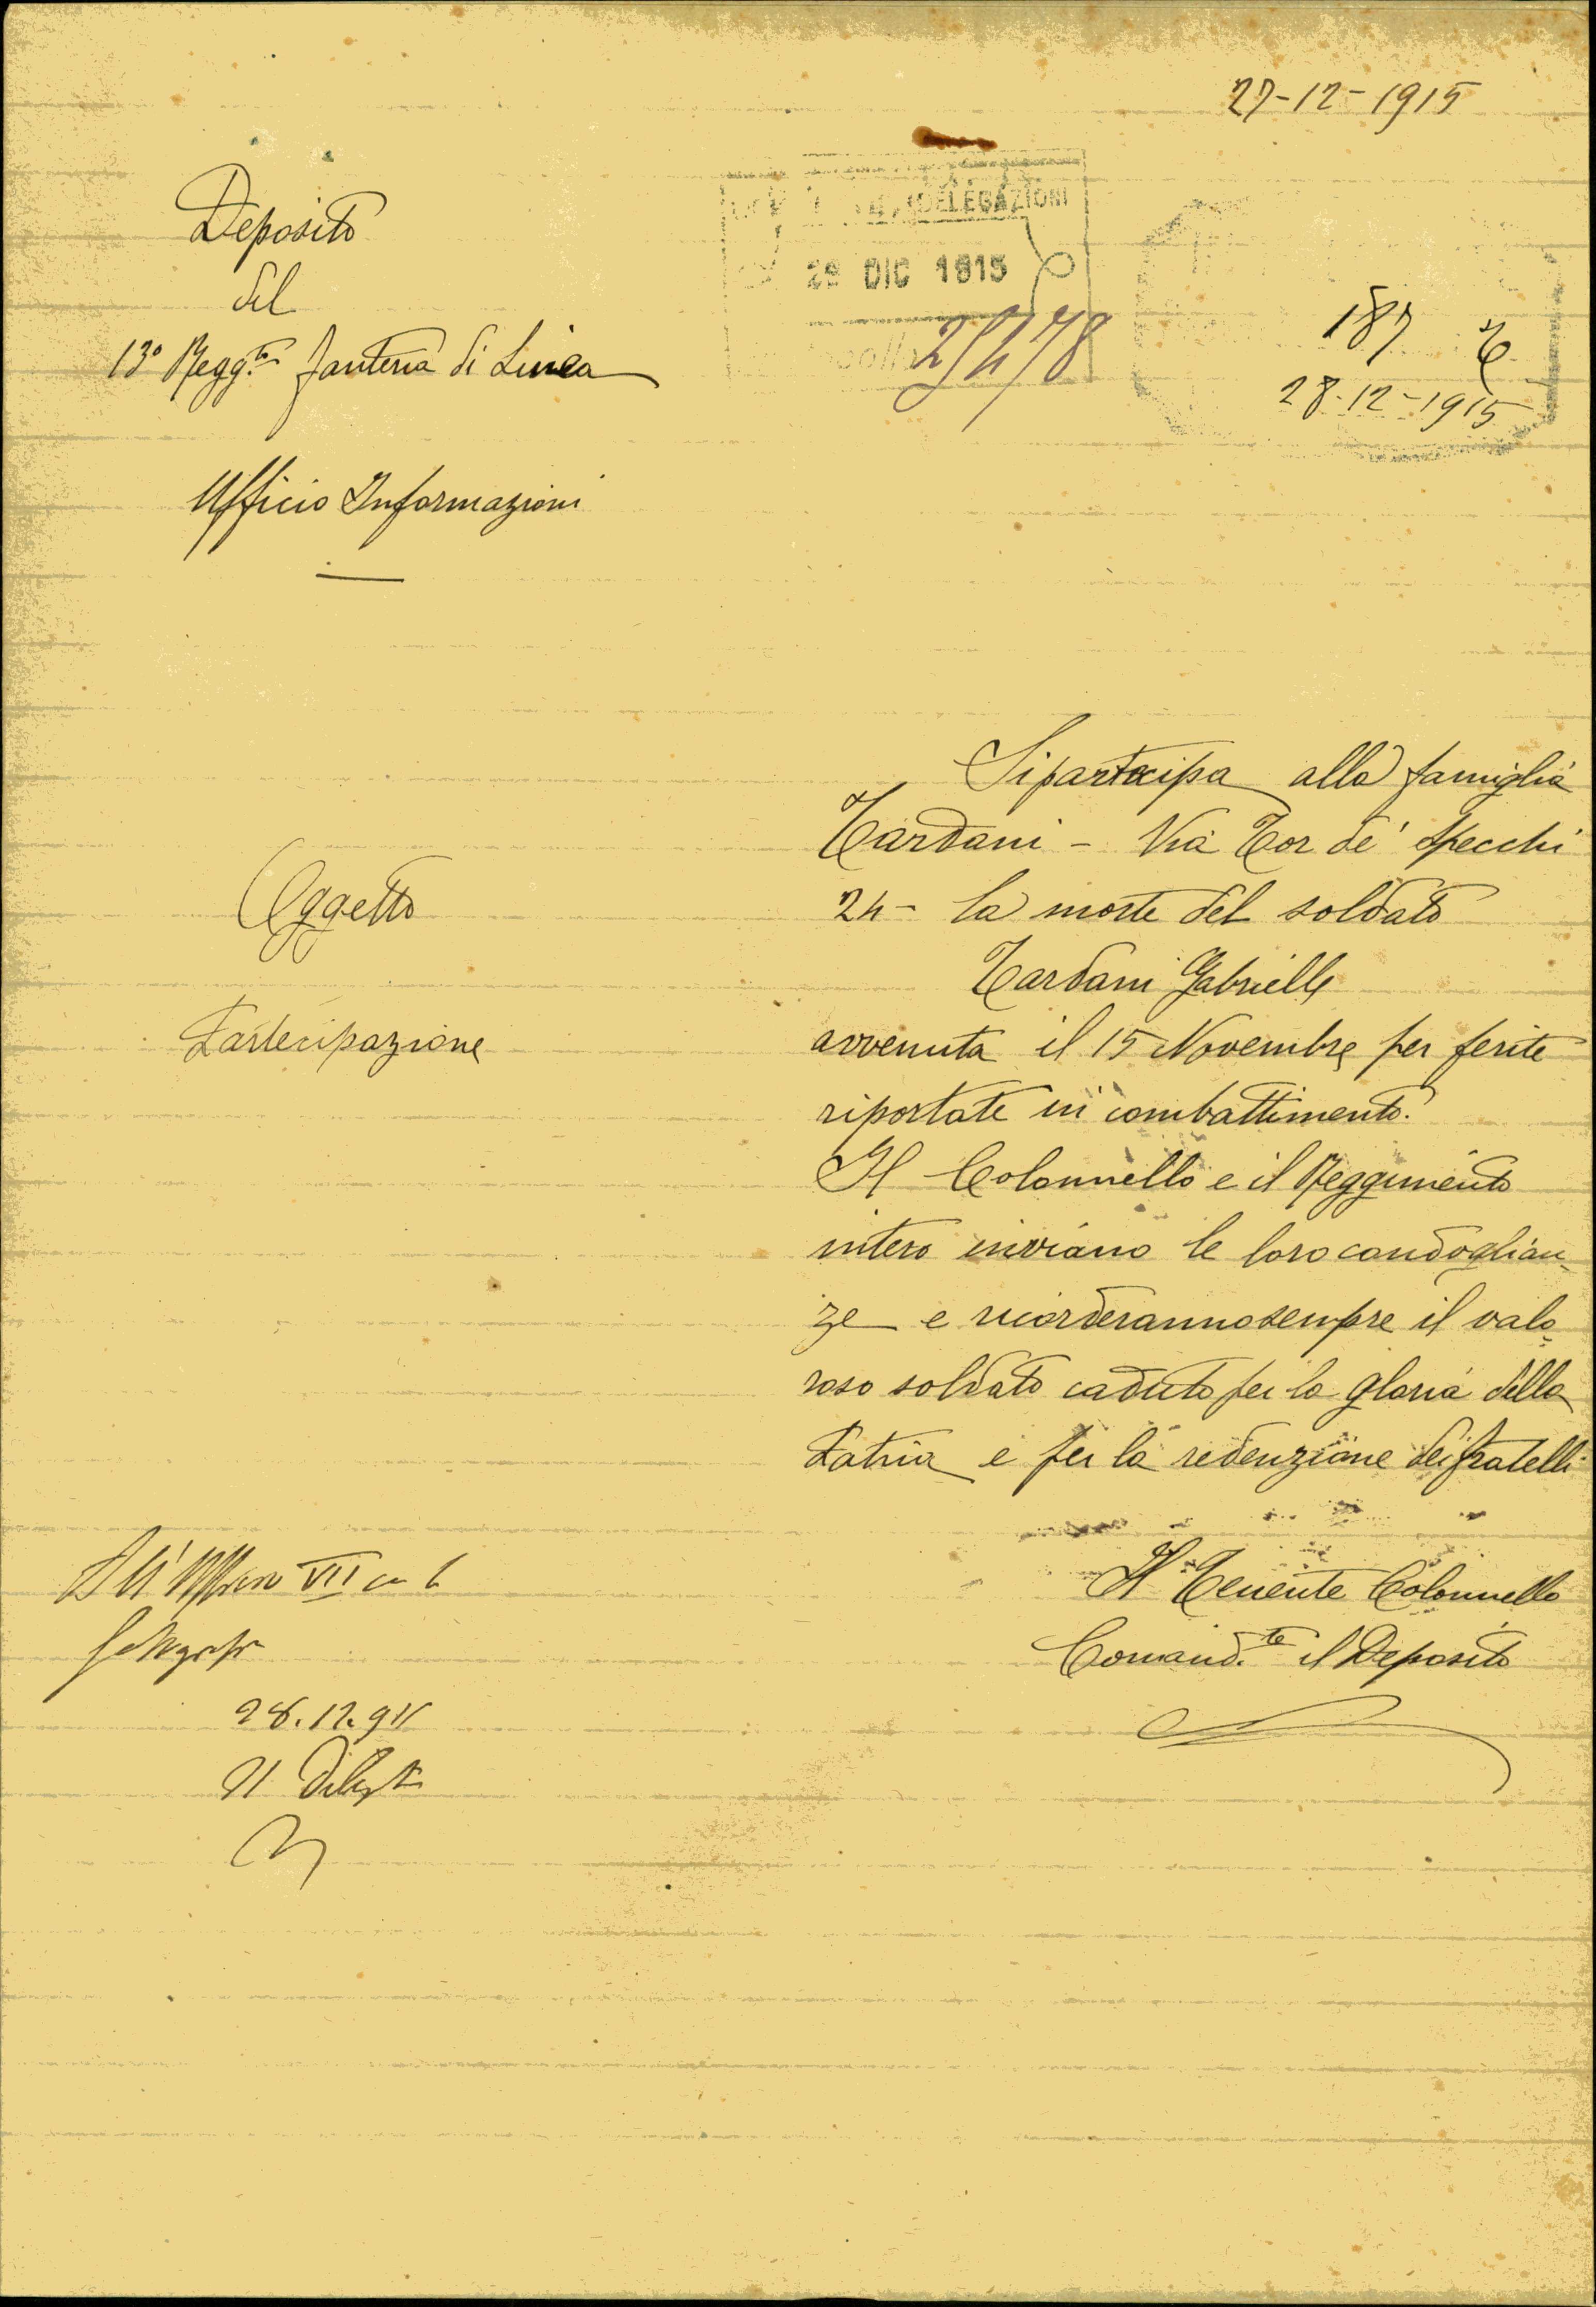 27-12-1915
Deposito
del
13° Regg.to fanteria di Linea
Ufficio Informazioni
DELEGAZIONI
29 DIC 1915
25478
187 T
28-12-1915
Si partecipa alla famiglia
Tardani - Via Tor de' Specchi
24 - la morte del soldato
Tardani Gabrielle
avvenuta il 15 Novembre per ferite
riportate in combattimento.
Il Colonnello e il Reggimento
intero inviano le loro condoglian-
ze e ricorderanno sempre il valo-
roso soldato caduto per la gloria della
Patria e per la redenzione dei fratelli.
Oggetto
Partecipazione
Il Tenente Colonnello
Comand.te il Deposito
All' VII
28.12.915
Il